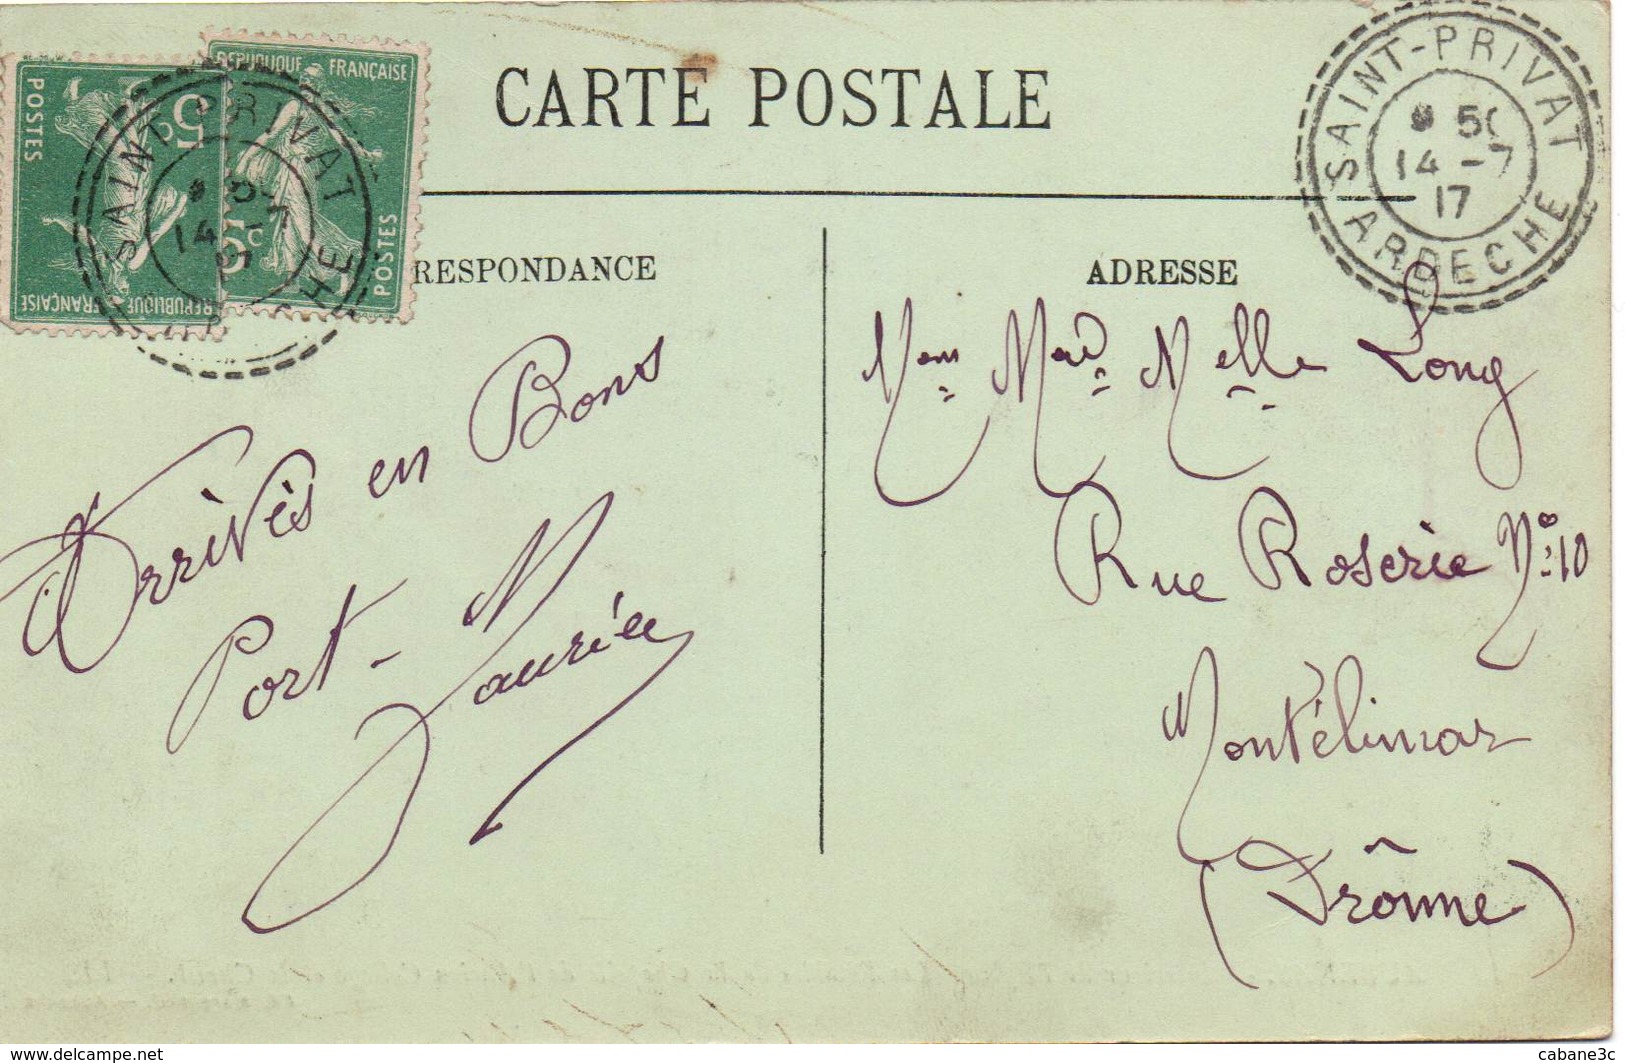 CARTE POSTALE
RESPONDANCE
ADRESSE
POSTES
5c
REPUBLIQUE FRANÇAISE
REPUBLIQUE FRANÇAISE
5c
POSTES
SAINT-PRIVAT
14
SAINT-PRIVAT
50
14 -7
17
ARDECHE
Arrivés en Bons
Port-
Melle Long
Rue Roserie No 10
Montélimar
(Drôme)
www.delcampe.net
cabane3c